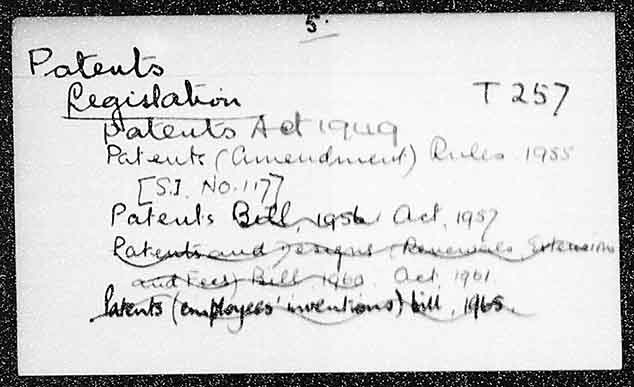 5.
Patents
Legislation
T 257
Patents Act 1949
Patents (Amendment) Rules 1955
[S.I. No. 117]
Patents Bill, 1956 Act, 1957
Patents and Designs (Renewals, Extensions
and Fees) Bill 1960. Act, 1961
Patents (employees' inventions) bill, 1965.